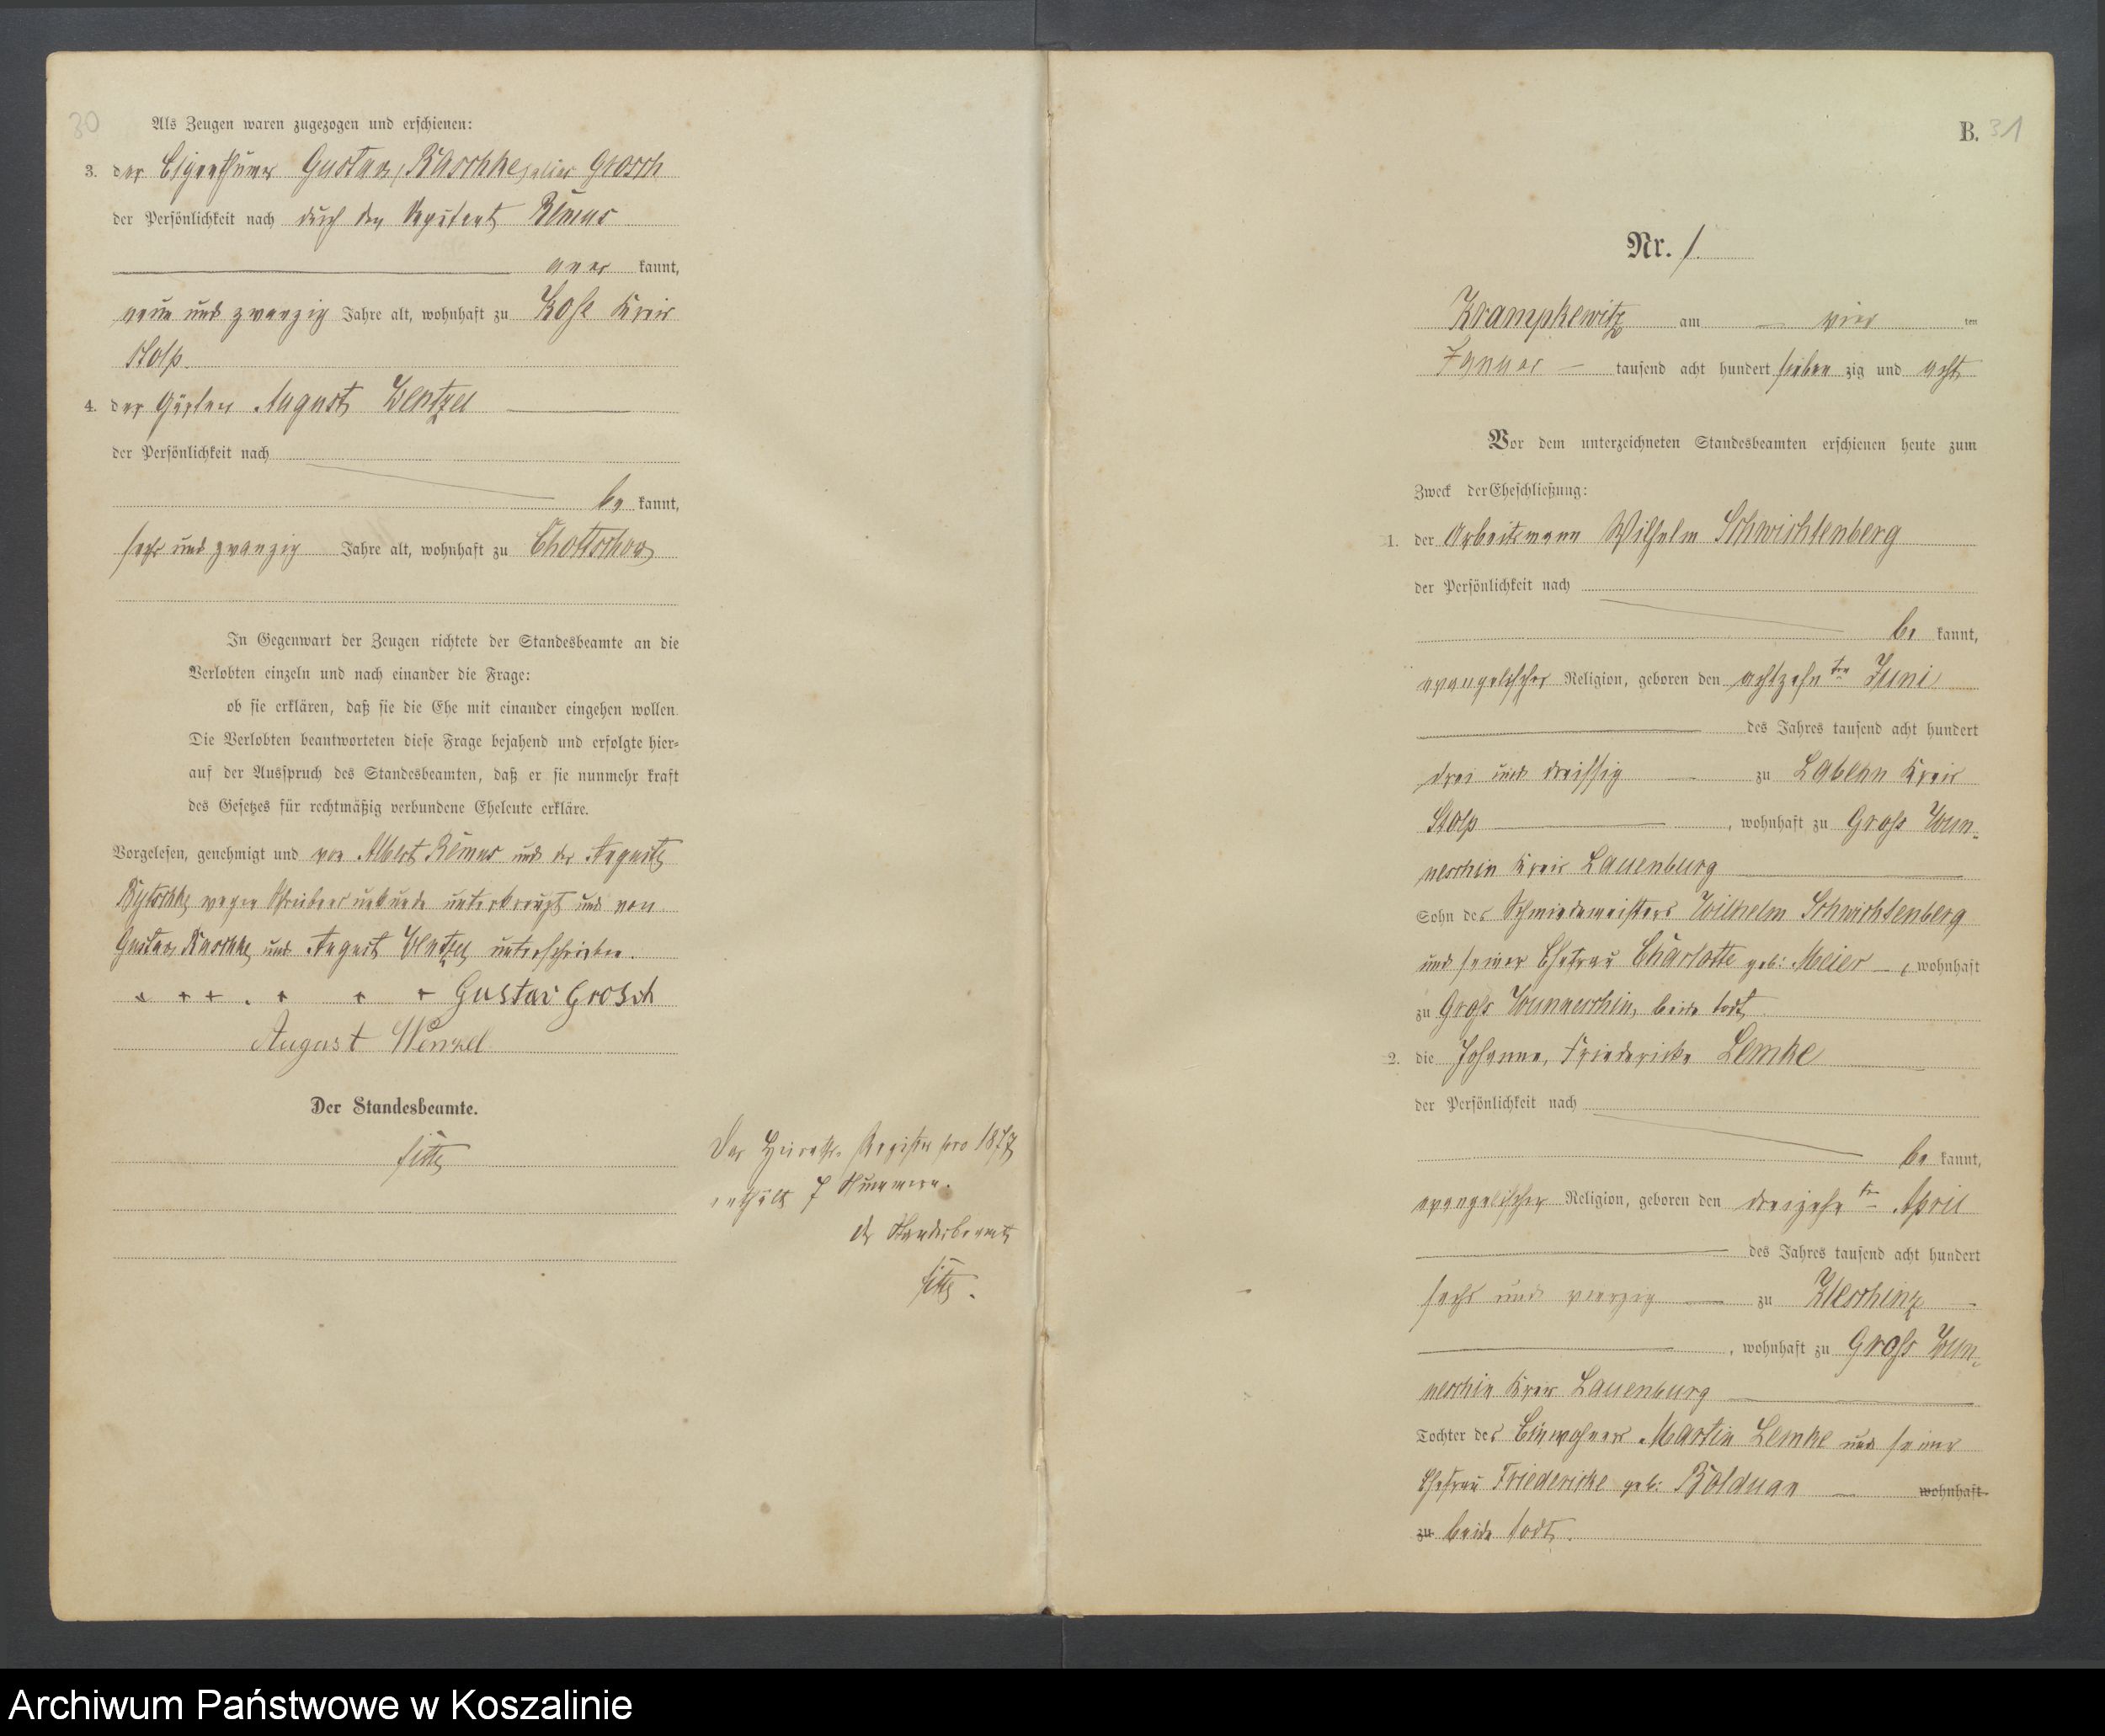 30
Als Zeugen waren zugezogen und erschienen:
3. der Eigenthümer Gustav Raschke, alias Grosch
der Persönlichkeit nach durch den Remus
aner kannt,
neun und zwanzig Jahre alt, wohnhaft zu Kose Kreis
Stolp.
4. der Gärtner August Wentzel
der Persönlichkeit nach
be kannt,
sechs und zwanzig Jahre alt, wohnhaft zu Chottschow
In Gegenwart der Zeugen richtete der Standesbeamte an die
Verlobten einzeln und nach einander die Frage:
ob sie erklären, daß sie die Ehe mit einander eingehen wollen.
Die Verlobten beantworteten diese Frage bejahend und erfolgte hier-
auf der Ausspruch des Standesbeamten, daß er sie nunmehr kraft
des Gesetzes für rechtmäßig verbundene Eheleute erkläre.
Vorgelesen, genehmigt und von Albert Remus und der Auguste
wegen unterkreuzt und von
Gustav Raschke und August Wentzel unterschrieben.
+ + + . + + + Gustav Grosch
August Wenzel
Der Standesbeamte.
Das Heiraths-Register pro 1877
enthält 7 Nummern.
Der Standesbeamte
B. 31
Nr. 1.
Krampkewitz am vier ten
Januar tausend acht hundert sieben zig und acht
Vor dem unterzeichneten Standesbeamten erschienen heute zum
Zweck der Eheschließung:
1. der Arbeitsmann Wilhelm Schwichtenberg
der Persönlichkeit nach
be kannt,
evangelischer Religion, geboren den achtzehn ten Juni
des Jahres tausend acht hundert
drei und dreissig zu Labehn Kreis
Stolp , wohnhaft zu Gross Wun-
neschin Kreis Lauenburg
Sohn des Schmiedemeisters Wilhelm Schwichtenberg
und seiner Ehefrau Charlotte geb: Meier , wohnhaft
zu Gross Wunneschin, beide todt
2. die Johanne, Friedericke Lemke
der Persönlichkeit nach
be kannt,
evangelischer Religion, geboren den dreizehn ten April
des Jahres tausend acht hundert
sechs und vierzig zu Kleschinz
, wohnhaft zu Gross Wun-
neschin Kreis Lauenburg
Tochter des Einwohners Martin Lemke und seiner
Ehefrau Friedericke geb: Bolduan wohnhaft
zu beide todt.
Archiwum Państwowe w Koszalinie